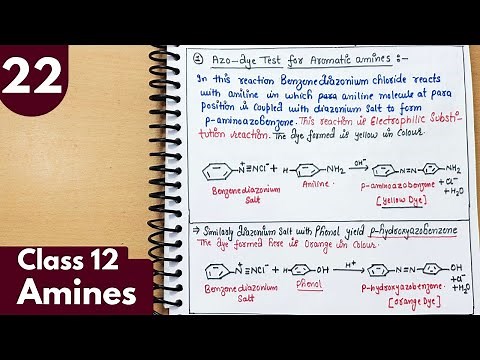 22
① Azo-dye Test for Aromatic amines :-
In this reaction Benzenediazonium chloride reacts
with aniline in which para aniline molecule at para
position is coupled with diazonium salt to form
p-aminoazobenzene. This reaction is Electrophilic Substi-
tution reaction. The dye formed is yellow in Colour.
N⁺≡NCl⁻ + H NH₂ OH⁻ N=N NH₂
Benzenediazonium Salt
Aniline
p-aminoazobenzene + Cl⁻ + H₂O
[yellow Dye]
⇒ Similarly diazonium Salt with Phenol yield p-hydroxyazobenzene
The dye formed here is Orange in Colour.
N⁺≡NCl⁻ + H OH H⁺ N=N OH
Benzenediazonium Salt
Phenol
p-hydroxyazobenzene. + Cl⁻ + H₂O
[orange Dye]
Class 12
Amines